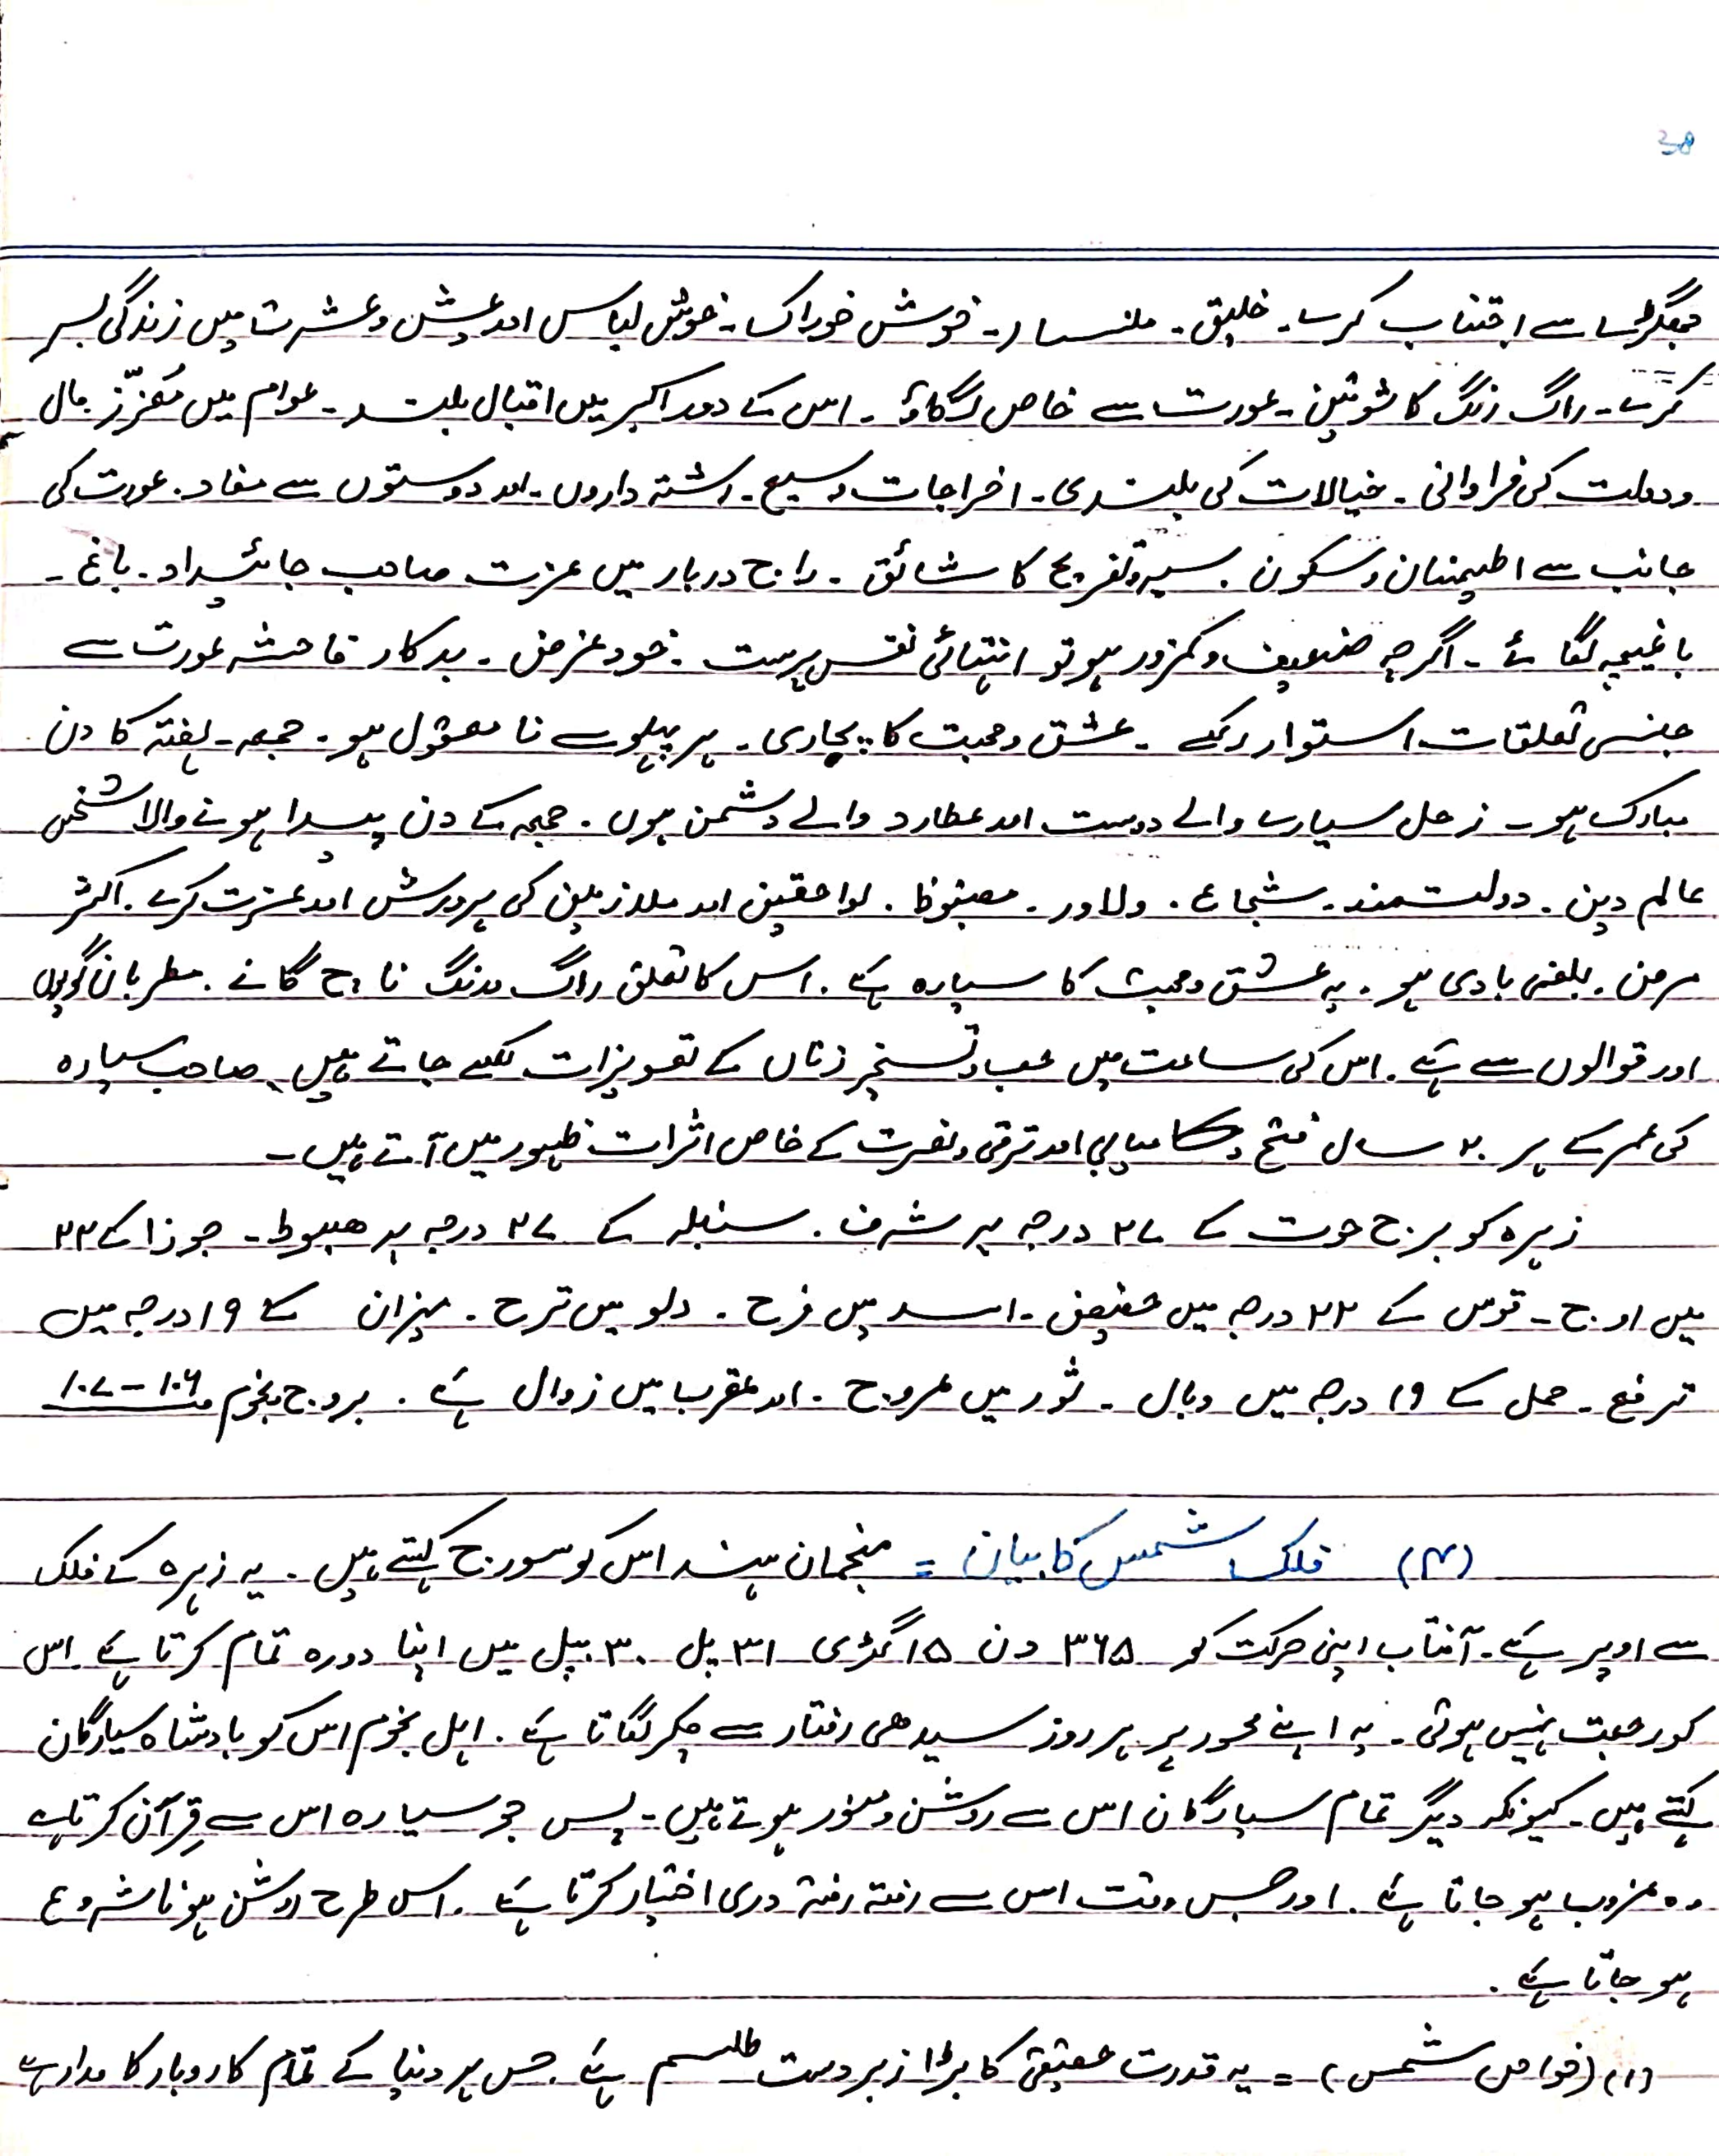 38
جھگڑے سے اجتناب کرے۔ خلیق۔ ملنسار۔ خوش خوراک۔ خوش لباس اور عیش و عشرت میں زندگی بسر
کرے۔ راگ رنگ کا شوقین۔ عورت سے خاص لگاؤ۔ اس کے دور اکبر میں اقبال بلند۔ عوام میں معزّز مال
و دولت کی فراوانی۔ خیالات کی بلندی۔ اخراجات وسیع۔ رشتہ داروں۔ اور دوستوں سے مفاد۔ عورت کی
جانب سے اطیمنان و سکون۔ سیر و تفریح کا شائق۔ راج دربار میں عزت صاحب جائیداد۔ باغ۔
باغیچہ لگائے۔ اگرچہ ضعیف و کمزور ہو تو انتہائی نفس پرست۔ خود غرض۔ بدکار فاحشہ عورت سے
جنسی تعلقات استوار رکھے۔ عشق و محبت کا پجاری۔ ہر پہلو سے نا معقول ہو۔ جمعہ۔ ہفتہ کا دن
مبارک ہو۔ زحل سیارے والے دوست اور عطارد والے دشمن ہوں۔ جمعہ کے دن پیدا ہونے والا شخص
عالم دین۔ دولتمند۔ شجاع۔ دلاور۔ مضبوط۔ لواحقین اور ملازمین کی پرورش اور عزت کرے۔ اکثر
مرض۔ بلغمی بادی ہو۔ یہ عشق و محبت کا سیارہ ہے۔ اس کا تعلق راگ و رنگ ناچ گانے۔ مطربان گویوں
اور قوالوں سے ہے۔ اس کی ساعت میں حب و تسخیر زناں کے تعویزات لکھے جاتے ہیں۔ صاحب سیارہ
کی عمر کے ہر ۲۰ سال فتح و کامیابی اور ترقی و نصرت کے خاص اثرات ظہور میں آتے ہیں۔
زہرہ کو برج حوت کے ۲۷ درجہ پر شرف۔ سنبلہ کے ۲۷ درجہ پر ھبوط۔ جوزا کے ۲۲
میں اوج۔ قوس کے ۲۲ درجہ میں حضیض۔ اسد میں فرح۔ دلو میں ترح۔ میزان کے ۱۹ درجہ میں
ترفع۔ حمل کے ۱۹ درجہ میں وبال۔ ثور میں عروج۔ اور عقرب میں زوال ہے۔ بروج نجوم ۱۰۶ – ۱۰۷
(۴) فلک شمس کا بیان = منجمان ہند اس کو سورج کہتے ہیں۔ یہ زہرہ کے فلک
سے اوپر ہے۔ آفتاب اپنی حرکت کو ۳۶۵ دن ۱۵ گھڑی ۳۱ پل ۳۰ بپل میں اپنا دورہ تمام کرتا ہے۔ اس
کو رجعت نہیں ہوتی۔ یہ اپنے محور پر ہر روز سیدھی رفتار سے چکر لگاتا ہے۔ اہل نجوم اس کو بادشاہ سیارگان
کہتے ہیں۔ کیونکہ دیگر تمام سیارگان اس سے روشن و منور ہوتے ہیں۔ پس جو سیارہ اس سے قِرآن کرتا ہے
وہ غروب ہو جاتا ہے۔ اور جس وقت اس سے رفتہ رفتہ دوری اختیار کرتا ہے۔ اس طرح روشن ہونا شروع
ہو جاتا ہے۔
(۱) (خواص شمس) = یہ قدرت حقیقی کا بڑا زبردست طلسم ہے۔ جس پر دنیا کے تمام کاروبار کا مدار ہے